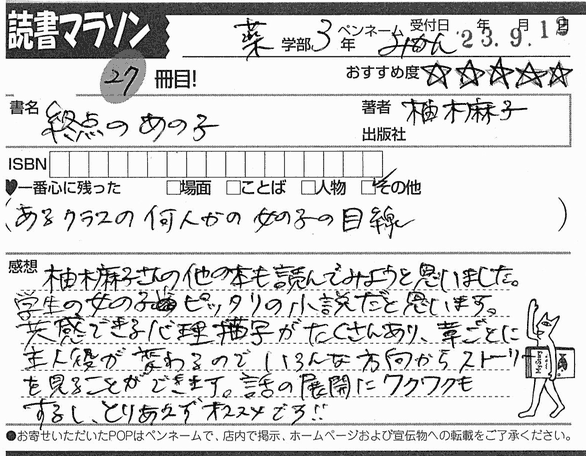 読書マラソン
薬 学部 3 年 ペンネーム みかん 受付日 年 月 日
23.9.1
27 冊目!
おすすめ度 ☆☆☆☆☆
書名 終点のあの子
著者 柚木麻子
出版社
ISBN
♥一番心に残った □場面 □ことば □人物 ☑その他
(あるクラスの何人かの女の子の目線)
感想 柚木麻子さんの他の本も読んでみようと思いました。
学生の女の子にピッタリの小説だと思います。
共感できる心理描写がたくさんあり、章ごとに
主人役が変わるのでいろんな方向からストーリー
を見ることができます。話の展開にワクワクも
するし、とりあえずオススメです!!
Mystery
●お寄せいただいたPOPはペンネームで、店内で掲示、ホームページおよび宣伝物への転載をご了承ください。